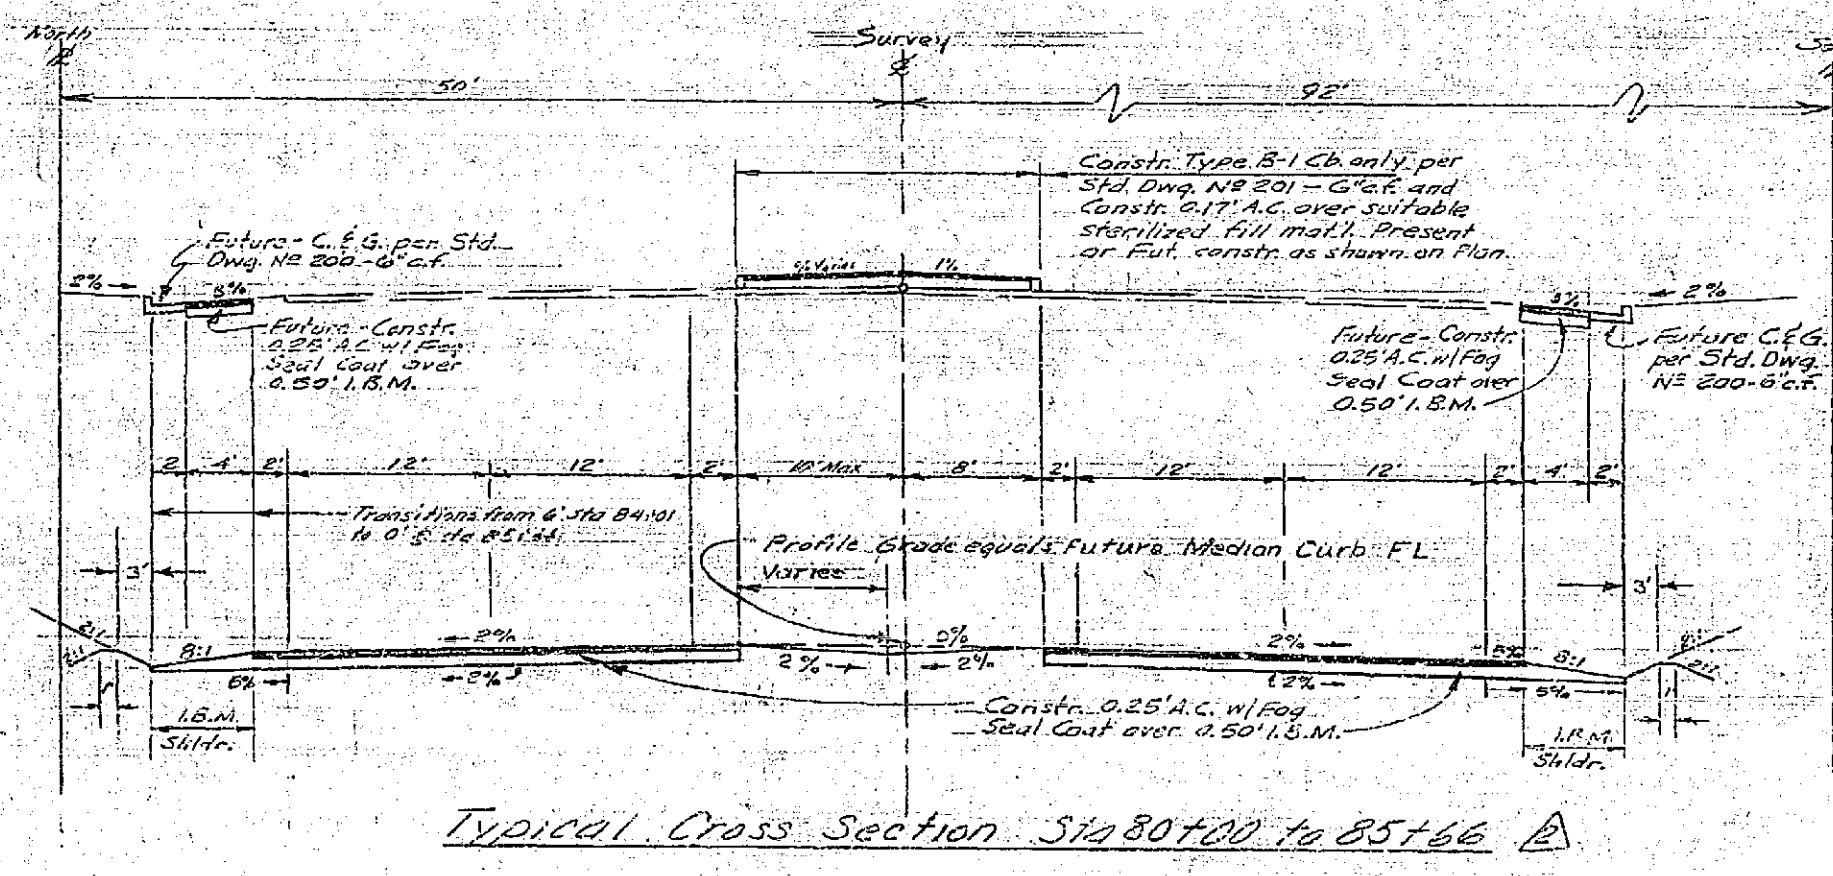 North
Survey
50'
92'
Constr. Type B-1 Cb. only per
Std. Dwg. Nº 201 - 6" c.f. and
Constr. 0.17' A.C. over suitable
sterilized fill mat'l. Present
or Fut. constr. as shown on Plan.
Future - C. & G. per Std.
Dwg. Nº 200 - 6" c.f.
2%
% Varies
1%
2%
Future - Constr.
0.25' A.C. w/ Fog
Seal Coat over
0.50' I.B.M.
Future - Constr.
0.25' A.C. w/ Fog
Seal Coat over
0.50' I.B.M.
Future C. & G.
per Std. Dwg.
Nº 200 - 6" c.f.
2 4' 2' 12' 12' 2' 10' Max 8' 2' 12' 12' 2' 4' 2'
Transitions from 6' Sta 84+01
Profile Grade equals Future Median Curb FL
Varies
3'
3'
2:1
2:1
8:1
2%
0%
2%
5%
8:1
2:1
2%
2%
2%
2%
5%
1'
Constr. 0.25' A.C. w/ Fog
Seal Coat over 0.50' I.B.M.
I.B.M.
Shldr.
I.B.M.
Shldr.
Typical Cross Section Sta 80+00 to 85+66 2